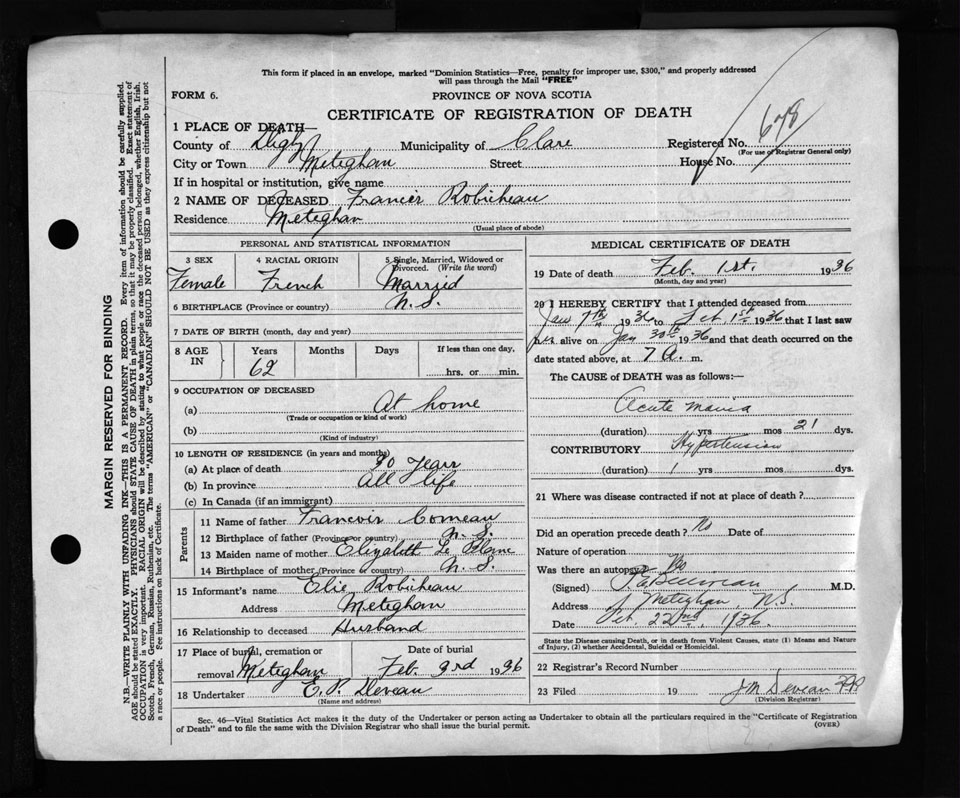 This form if placed in an envelope, marked "Dominion Statistics—Free, penalty for improper use, $300," and properly addressed
will pass through the Mail "FREE"
FORM 6.
PROVINCE OF NOVA SCOTIA
CERTIFICATE OF REGISTRATION OF DEATH
678
1 PLACE OF DEATH—
County of Digby Municipality of Clare Registered No.
(For use of Registrar General only)
City or Town Meteghan Street House No.
If in hospital or institution, give name
2 NAME OF DECEASED Robicheau
Residence Meteghan
(Usual place of abode)
PERSONAL AND STATISTICAL INFORMATION
3 SEX 4 RACIAL ORIGIN 5 Single, Married, Widowed or
Divorced. (Write the word)
Female French Married
6 BIRTHPLACE (Province or country) N. S.
7 DATE OF BIRTH (month, day and year)
8 AGE IN Years Months Days If less than one day,
62 hrs. or min.
9 OCCUPATION OF DECEASED
(a) At home
(Trade or occupation or kind of work)
(b)
(Kind of industry)
10 LENGTH OF RESIDENCE (in years and months)
(a) At place of death years
(b) In province all life
(c) In Canada (if an immigrant)
Parents
11 Name of father Francois Comeau
12 Birthplace of father (Province or country) N. S.
13 Maiden name of mother Elizabeth Le Blanc
14 Birthplace of mother (Province or country) N. S.
15 Informant's name Elie Robicheau
Address Meteghan
16 Relationship to deceased Husband
17 Place of burial, cremation or Date of burial
removal Meteghan Feb. 3rd 1936
18 Undertaker E. P. Deveau
(Name and address)
MEDICAL CERTIFICATE OF DEATH
19 Date of death Feb. 1st. 1936
(Month, day and year)
20 I HEREBY CERTIFY that I attended deceased from
Jan 7th 1936 to Feb. 1st 1936 that I last saw
her alive on Jan 30th 1936 and that death occurred on the
date stated above, at 7 A. m.
The CAUSE of DEATH was as follows:—
Acute mania
(duration) yrs mos 21 dys.
CONTRIBUTORY Hypertension
(duration) 1 yrs mos. dys.
21 Where was disease contracted if not at place of death?
Did an operation precede death? No Date of
Nature of operation
Was there an autopsy? No
(Signed) M.D.
Address Meteghan, N.S.
Date Feb. 22nd, 1936.
State the Disease causing Death, or in death from Violent Causes, state (1) Means and Nature
of Injury, (2) whether Accidental, Suicidal or Homicidal.
22 Registrar's Record Number
23 Filed 19 J M Deveau
(Division Registrar)
Sec. 46—Vital Statistics Act makes it the duty of the Undertaker or person acting as Undertaker to obtain all the particulars required in the "Certificate of Registration
of Death" and to file the same with the Division Registrar who shall issue the burial permit.
(OVER)
MARGIN RESERVED FOR BINDING
N.B.—WRITE PLAINLY WITH UNFADING INK—THIS IS A PERMANENT RECORD. Every item of information should be carefully supplied.
AGE should be stated EXACTLY. PHYSICIANS should STATE CAUSE OF DEATH in plain terms, so that it may be properly classified. Exact statement of
OCCUPATION is very important. RACIAL ORIGIN will be described by stating to what people or race the deceased person belonged, whether English, Irish,
Scotch, French, German, Russian, Ruthenian, etc. The terms "AMERICAN" or "CANADIAN" SHOULD NOT BE USED as they express citizenship but not
a race or people. See instructions on back of Certificate.